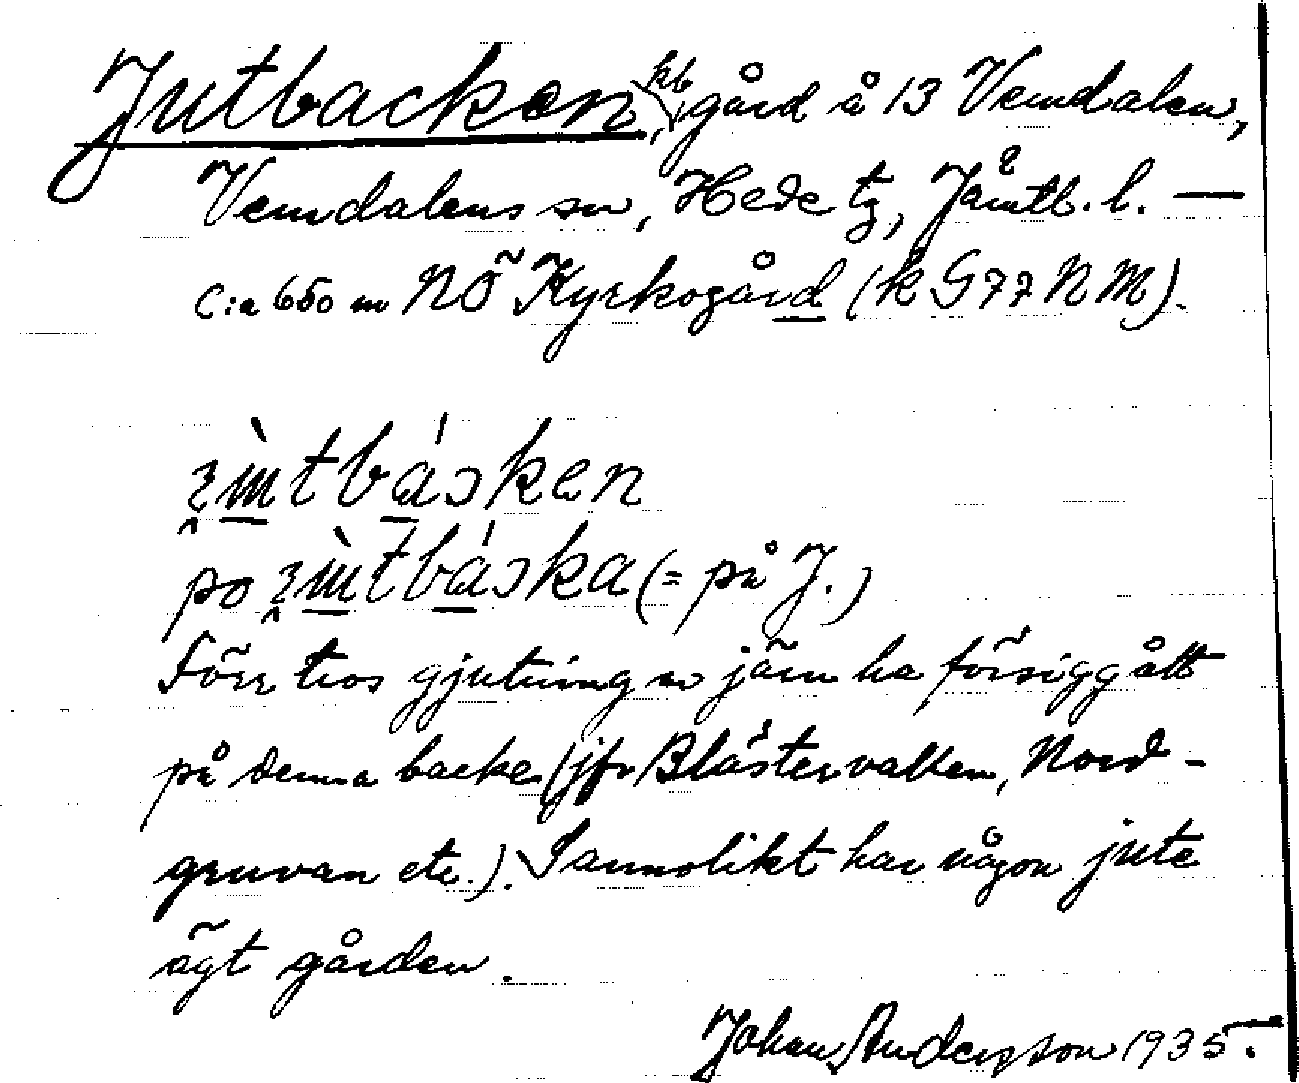 Jutbacken, kb, gård å 13 Vemdalen,
Vemdalens sn, Hede tg, Jämtl. l. —
c:a 650 m NÖ Kyrkogård (k G 77 N M).
po (= på J.)
Förr tros gjutning av järn ha försiggått
på denna backe (jfr Blästervallen, Nord-
gruvan etc.). Sannolikt har någon jute
ägt gården.
Johan Andersson 1935.